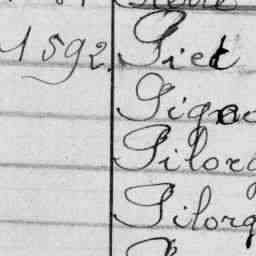 1592. Piet
Pigeo
Pilorg
Pilorg